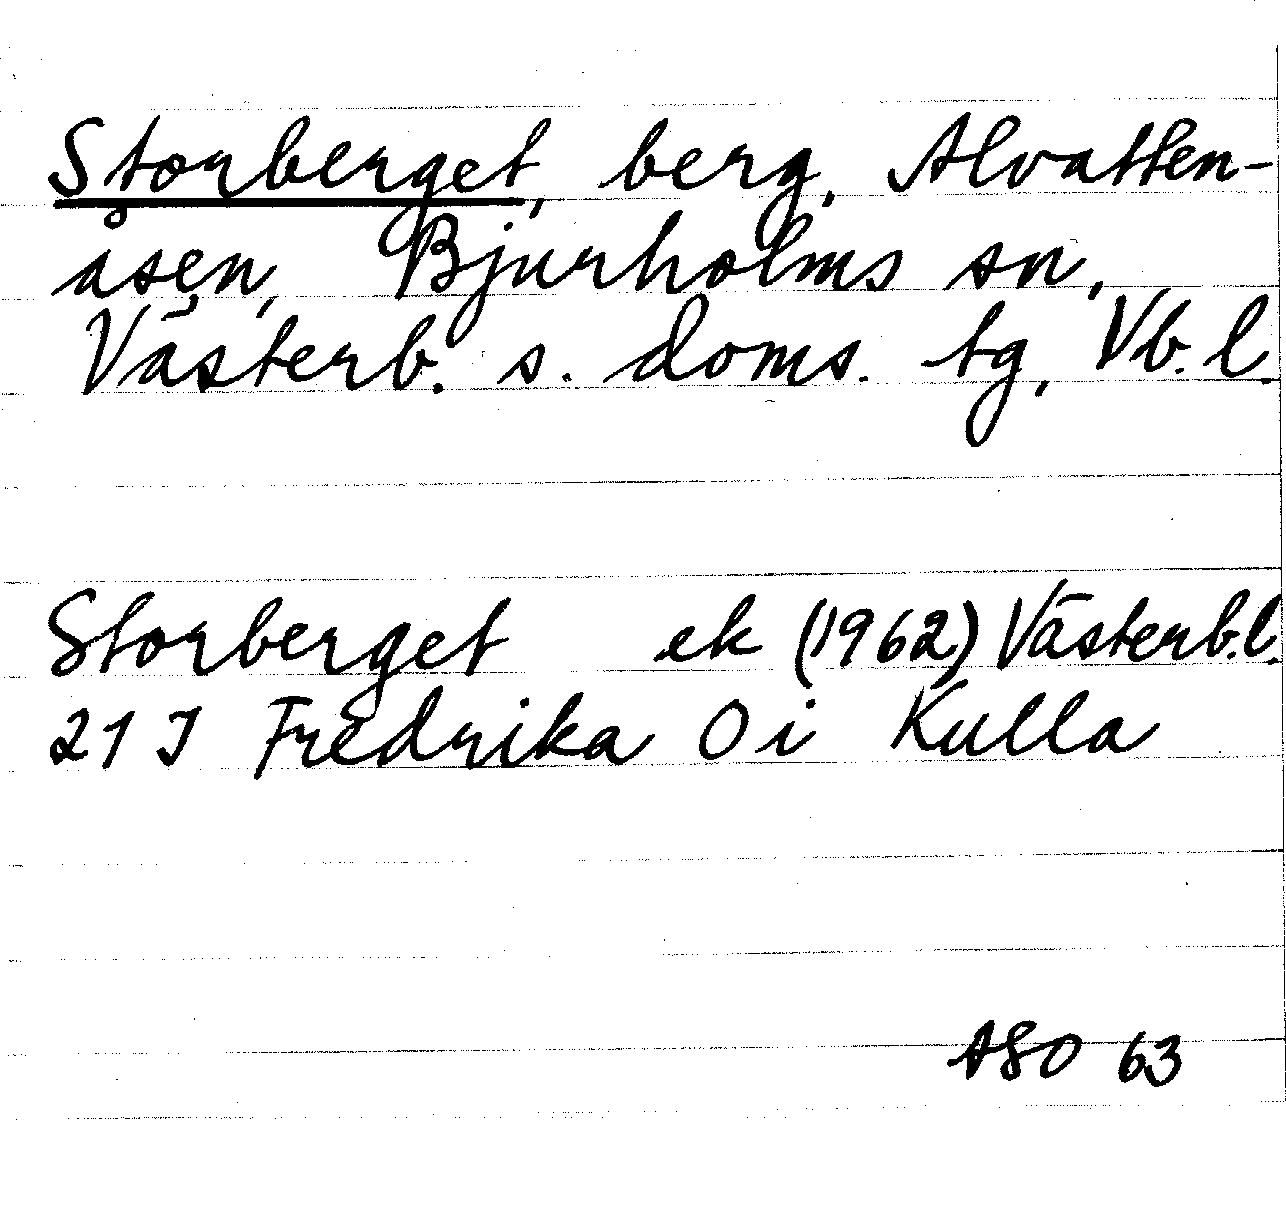 Storberget, berg, Alvatten-
åsen, Bjurholms sn,
Västerb. s. doms. tg, Vb. l.
Storberget ek (1962) Västerb.l.
21 J Fredrika O i Kulla
ASO 63